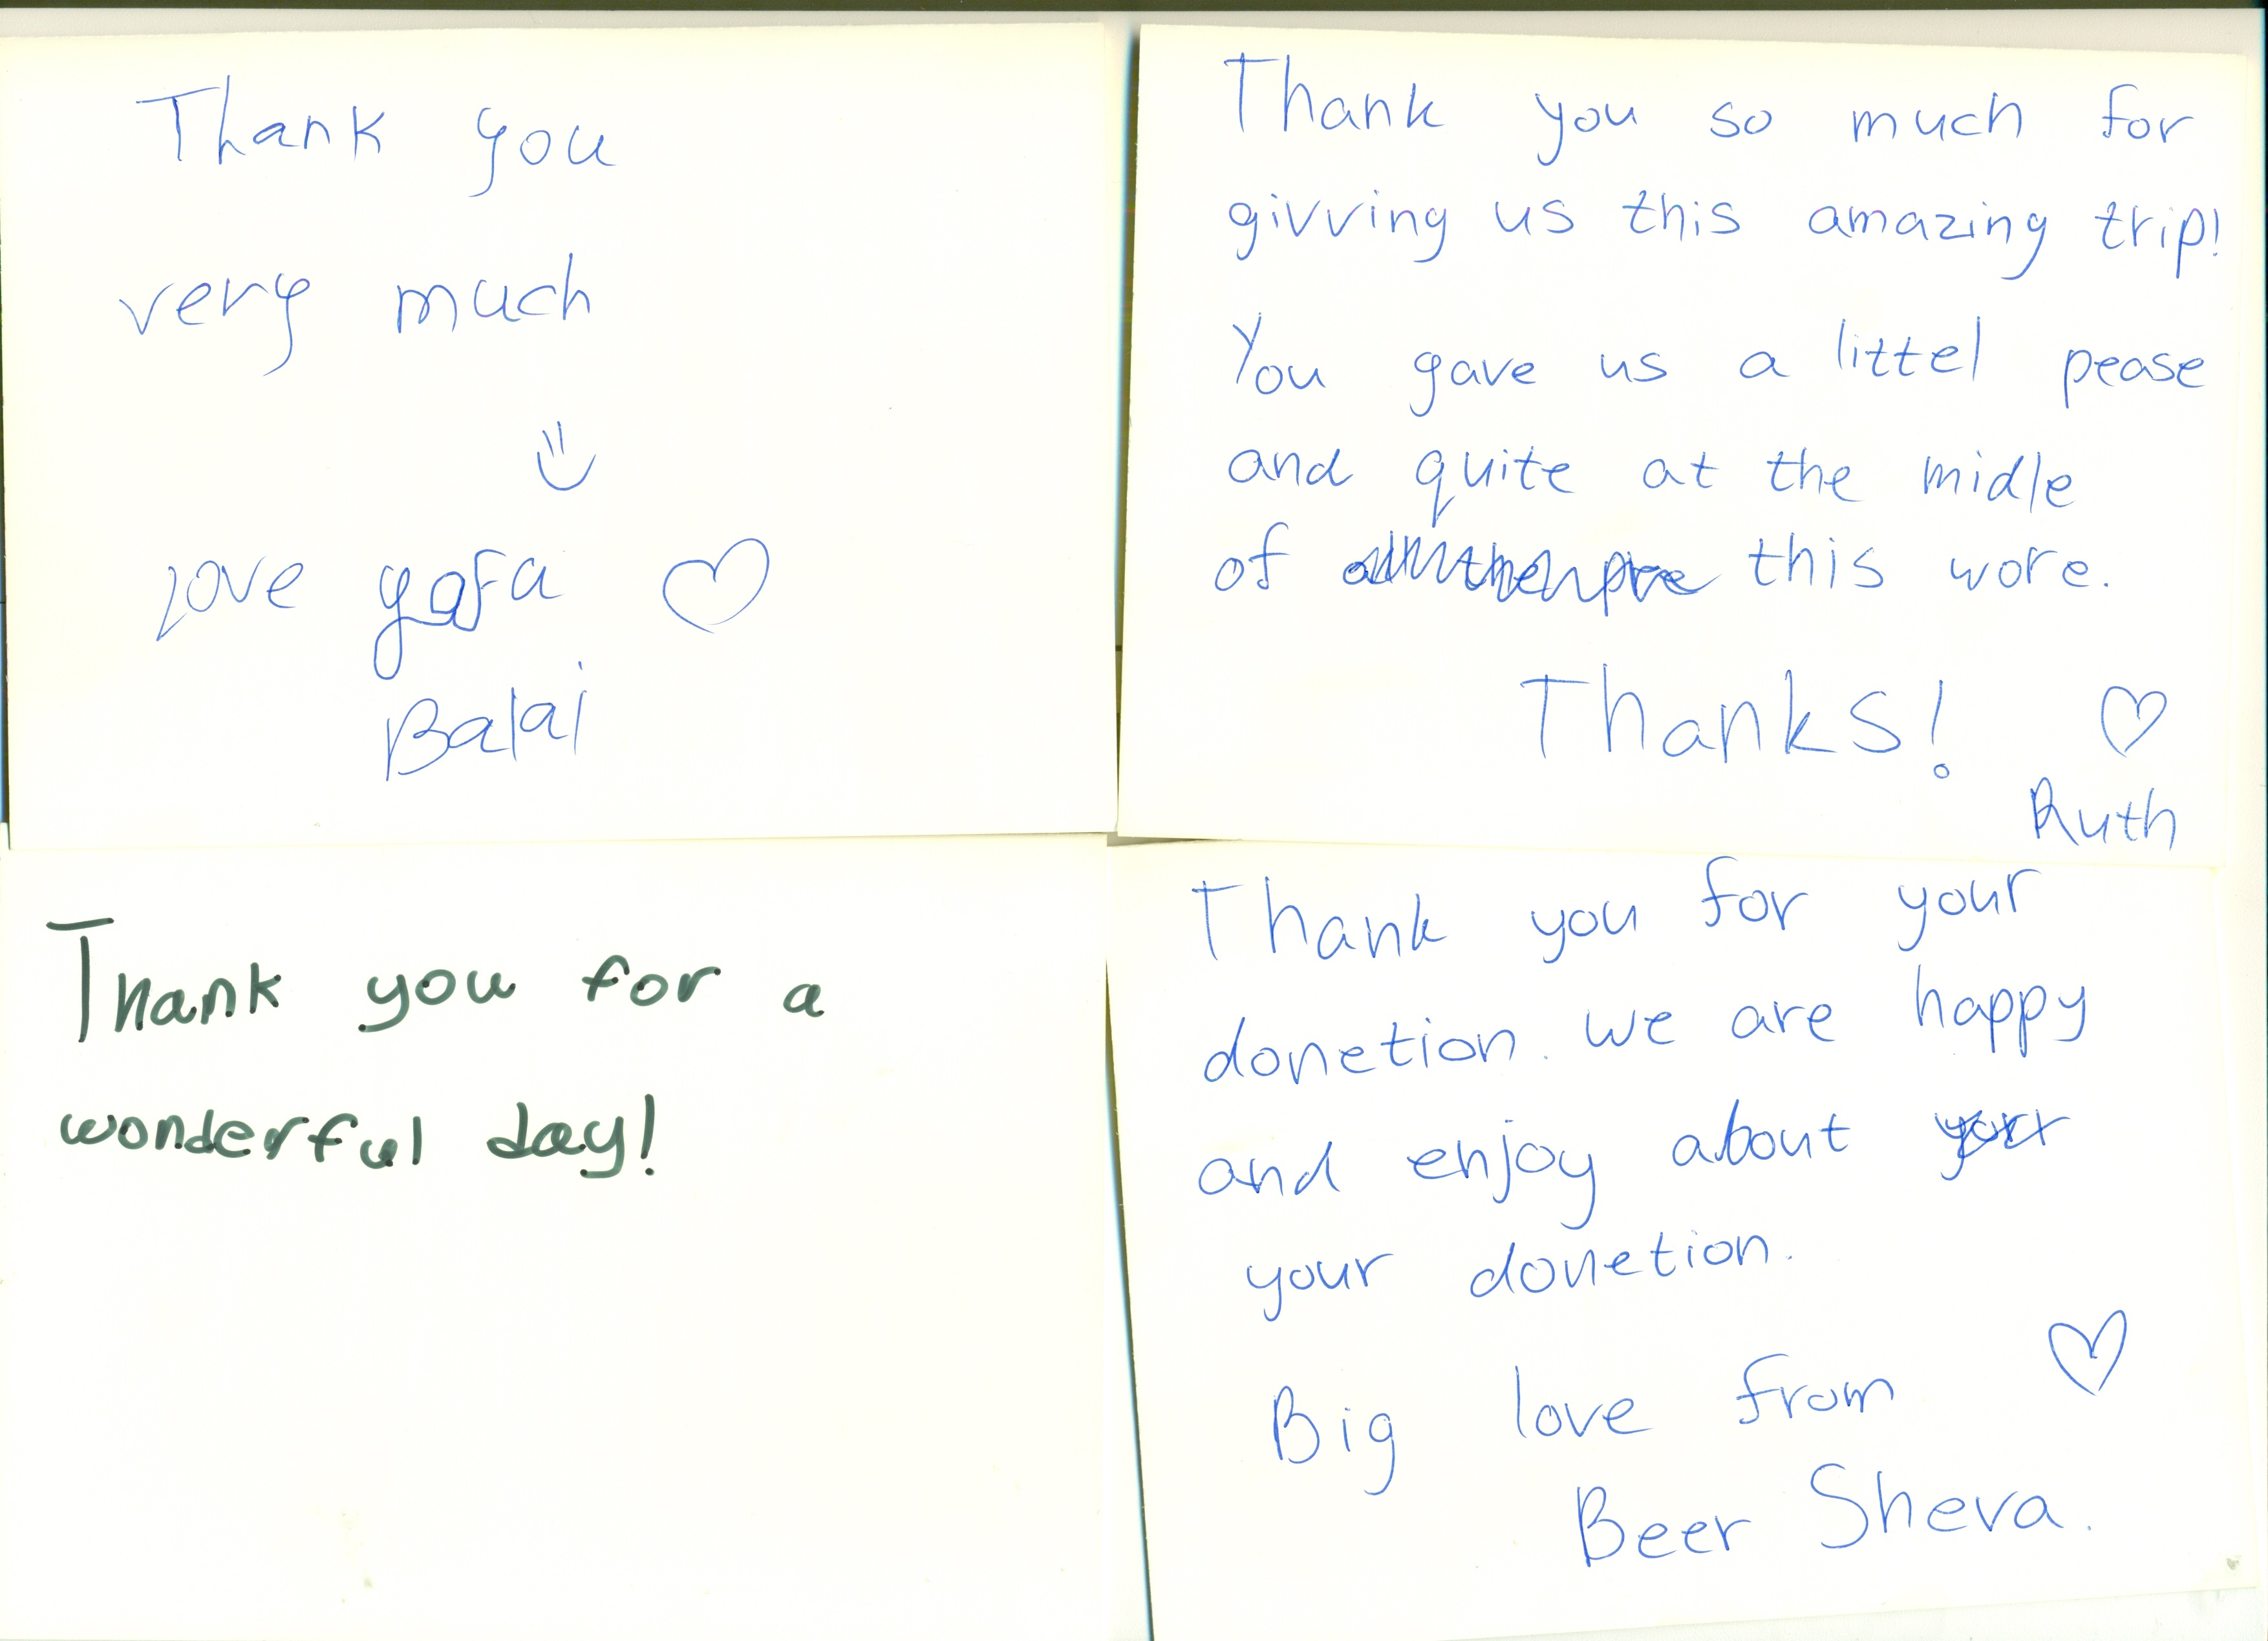 Thank you
very much
Love yafa
Balai
Thank you so much for
givving us this amazing trip!
You gave us a littel pease
and quite at the midle
of this wore.
Thanks!
Ruth
Thank you for a
wonderful day!
Thank you for your
donetion. we are happy
and enjoy about
your donetion.
Big love from
Beer Sheva.